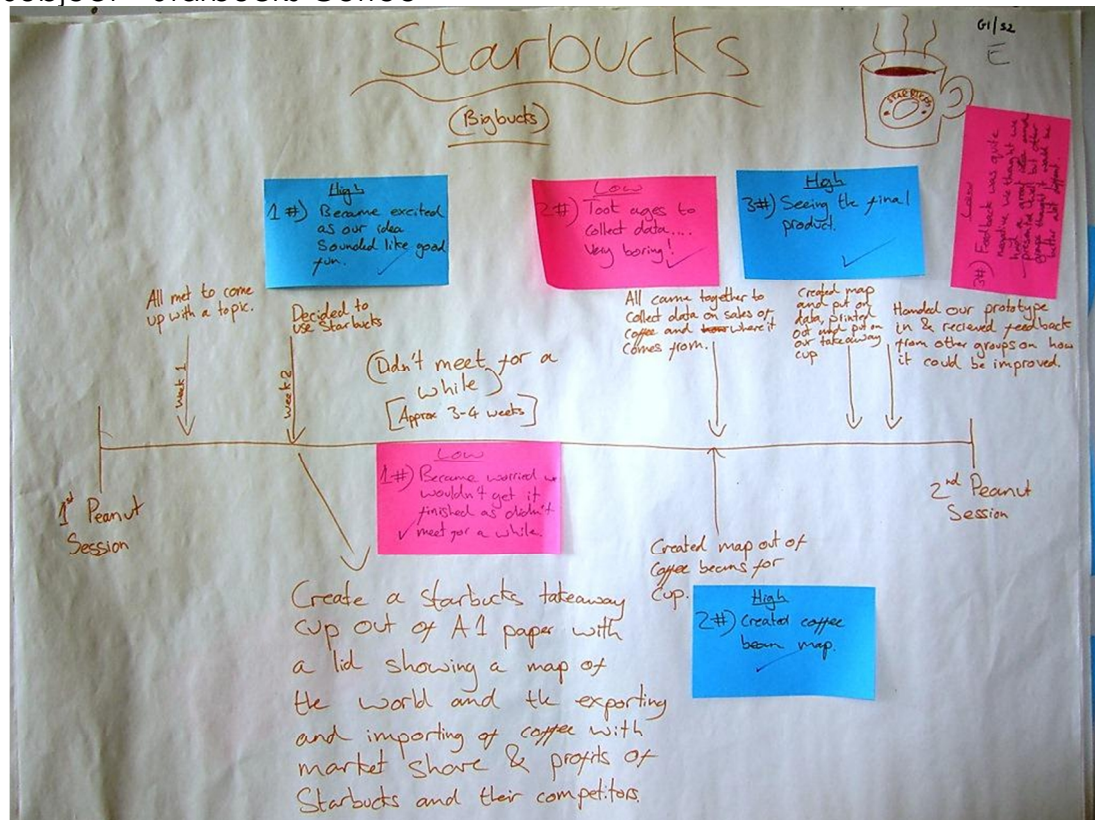 Starbucks
(Bigbucks)
G1/S2
E
STARBUCKS
High
1#) Became excited
as our idea
Sounded like good
fun.
Low
2#) Took ages to
collect data....
Very boring!
High
3#) Seeing the final
product.
Low
3#) Feedback was quite
negative we thought we
had a great idea and
presented well but other
groups thought it would be
better
All met to come
up with a topic.
week 1
Decided to
use Starbucks
week 2
(Didn't meet for a
while)
[Approx 3-4 weeks]
All came together to
collect data on sales of
coffee and where it
comes from.
Created map
and put on
data, printed
out and put on
our takeaway
cup
Handed our prototype
in & recieved feedback
from other groups on how
it could be improved.
1st Peanut
Session
Low
1#) Became worried we
wouldn't get it
finished as didn't
meet for a while.
2nd Peanut
Session
Created map out of
coffee beans for
cup.
High
2#) Created coffee
bean map.
Create a Starbucks takeaway
cup out of A1 paper with
a lid showing a map of
the world and the exporting
and importing of coffee with
market share & profits of
Starbucks and their competitors.